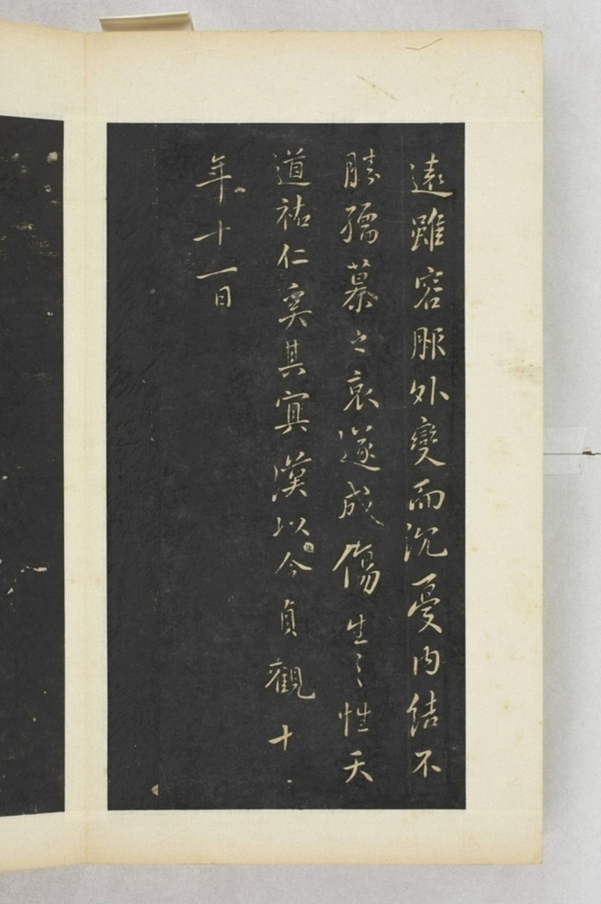 遠雖容服外變而沉憂內結不
勝孺慕之哀遂成傷生之性天
道祐仁奚其冥漠以今貞觀十
年十一日